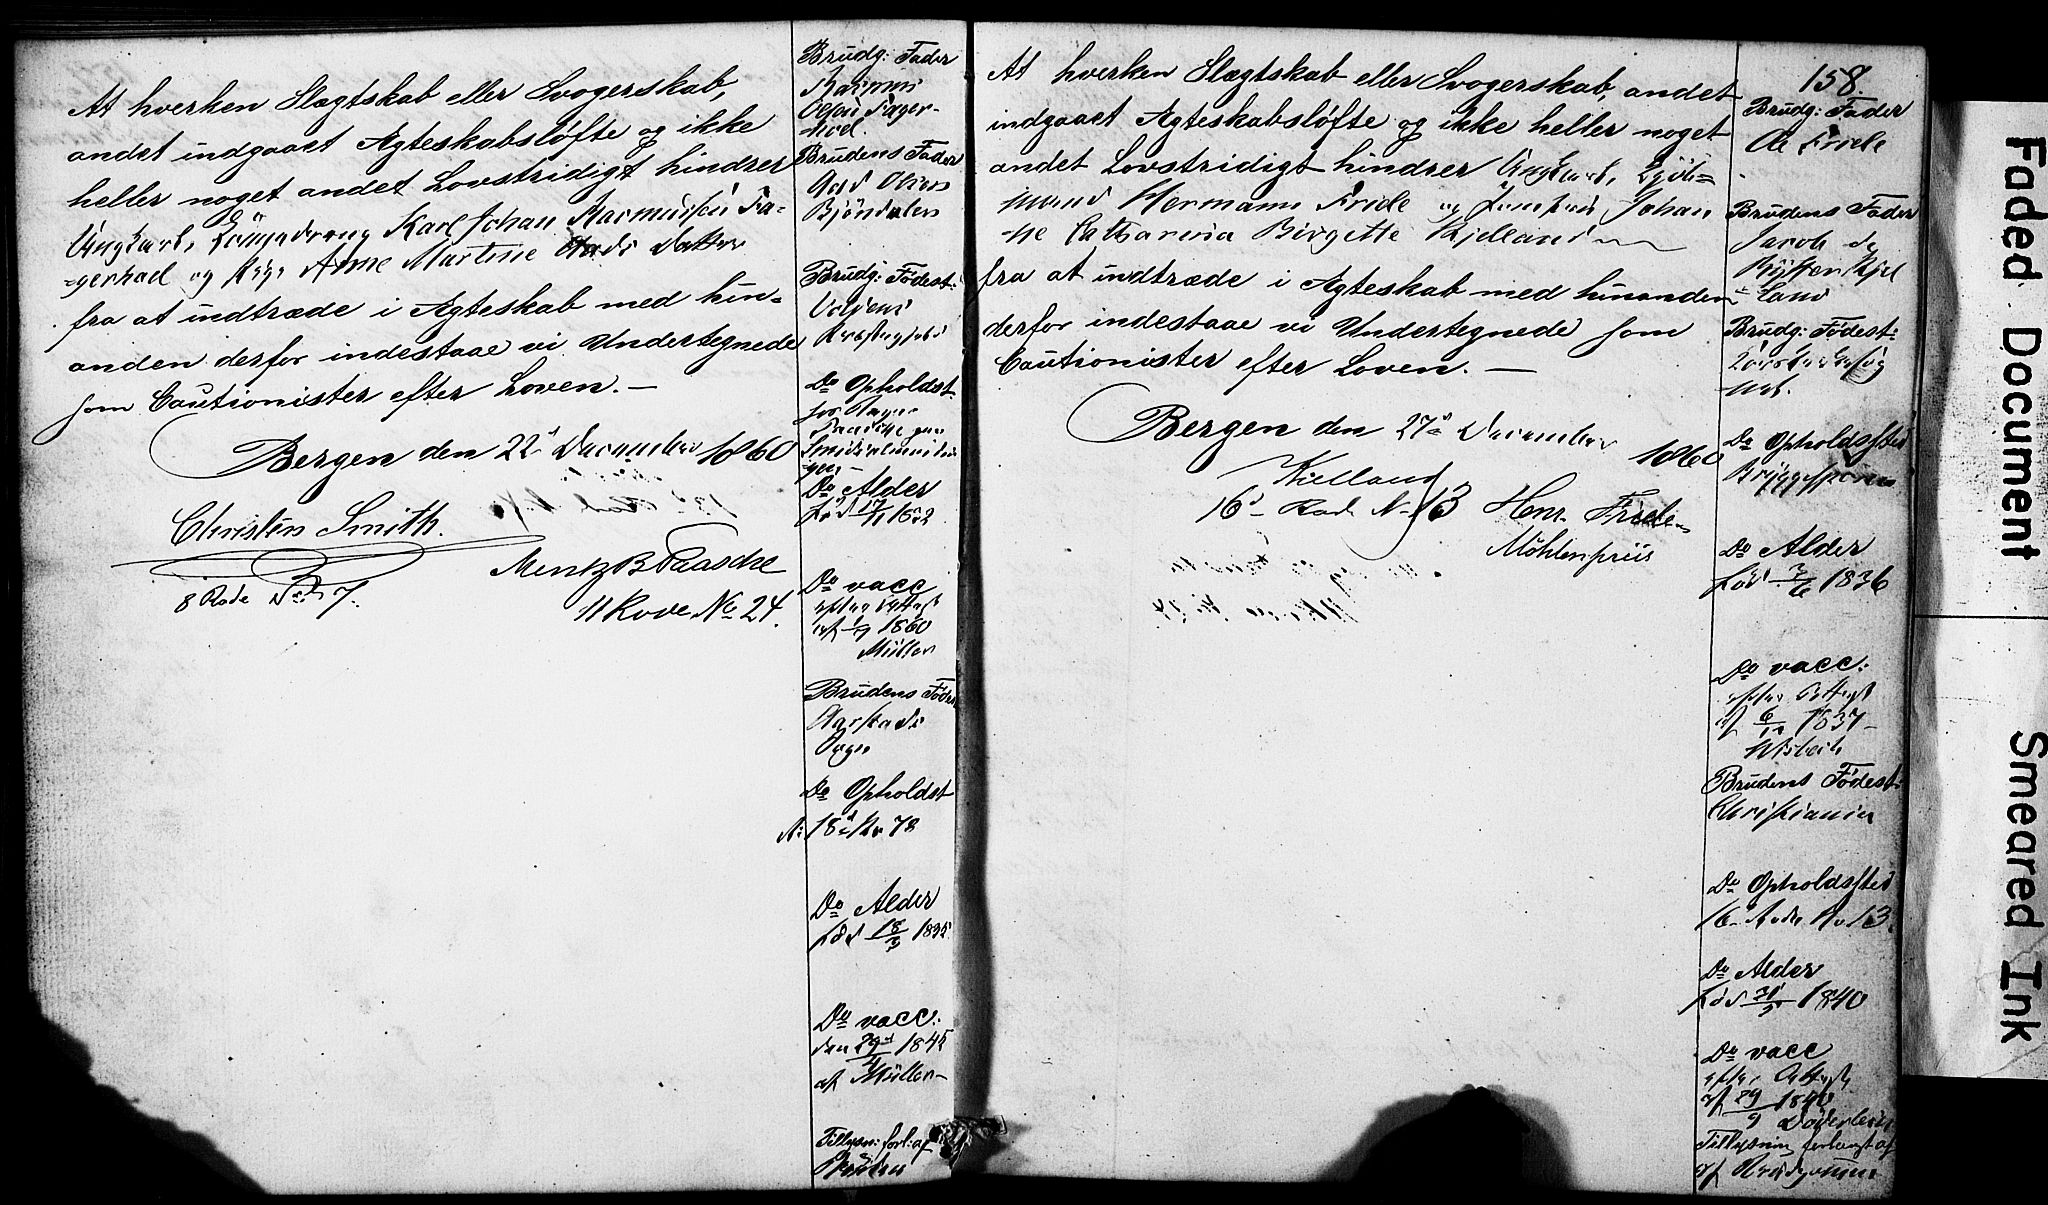 At hverken Slægtskab eller Svogerskab,
andet indgaaet Ægteskabsløfte og ikke
heller noget andet Lovstridigt hindrer
Ungkarl, Karl Johan Rasmussen Fa-
gerhael og Pige Anne Martine Aads Datter
fra at indtræde i Ægteskab med hin-
anden derfor indestaae vi Undertegnede
som Cautionister efter Loven. —
Bergen den 22d December 1860
Christen Smith.
8 Rode No 7.
Mentz B Paasche
11 Rode No 24.
Brudg: Fader
Rasmus
Olsen Fager-
hael.
Brudens Fader
Aad Olsen
Bjöndalen
Brudg: Fødest:
Do Opholdst
Do Alder
Fød 17/11 1832
Do vacc
efter Attest
af 1/9 1860
Müller
Brudens Føde
Aarstads
Sogn
Do Opholdst
18d No 78
Do Alder
fød 18/3 1835
Do vacc:
den 29d/4 1845
af Müller
Tillysn: forl: af
158.
At hverken Slægtskab eller Svogerskab, andet
indgaaet Ægteskabsløfte og ikke heller noget
andet Lovstridigt hindrer Ungkarl,
mand Hermann Friele og Jomfru Johan
ne Catharina Birgitte Kjelland
fra at indtræde i Ægteskab med hinanden
derfor indestaae vi Undertegnede som
Cautionister efter Loven. —
Bergen den 27d December 1860
Kielland
16d Rode No 13
Henr. Friele
Möhlenpriis
Brudg: Fader
Ole Friele
Brudens Fader
Jacob
Kjel
land
Brudg: Fødest:
Do Opholdssted
Bryggesporen
Do Alder
Fød 3/6 1836
Do vacc:
efter Attest
af 6/10 1837
Wisbech
Brudens Fødest:
Christiania
Do Opholdssted
16 Rode No 13.
Do Alder
fød 1840
Do vacc
efter Attest
af 29/9 1840
Döderlein
Tillysning forlangt af
af Brudgommen
Faded Document
Smeared Ink